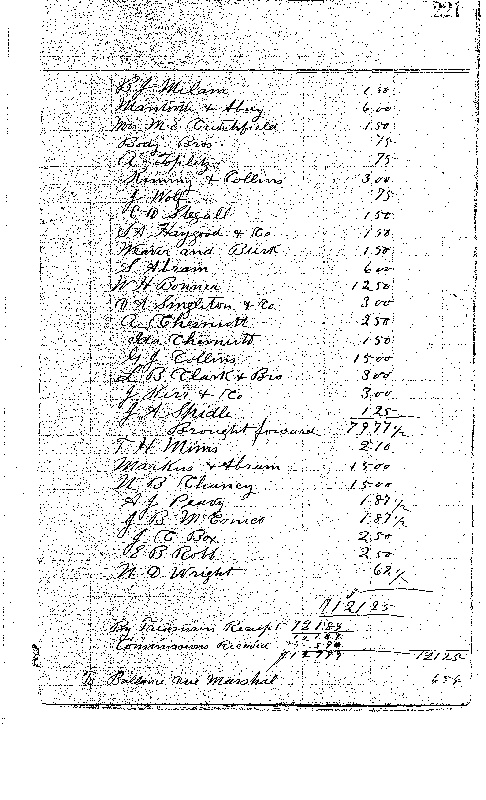 221
B. J. Milam 1 50
Mantooth & Abey 6 00
Mrs M. E. Crutchfield 1.50
Body Bros. 75
A. Toplitz 75
& Collins 3 00
J Wolf 75
C D Stegall 1 50
S. A. Haygood & Co 1 50
Weaver and Burk 1 50
S Abram 6 00
W H Bonner 12 50
A Singleton & Co 3 00
A Chesnutt 2 50
Ida Chesnutt 1 50
G J Collins 15 00
L B Clark & Bro 3 00
J Kerr & Co 3.00
J. A. Spidle 1 25
Brought forward 79 77 1/2
T. H. Mims 2 10
Markus & Abram 15 00
W B Chaney 15 00
A J Peavy 1.87 1/2
J B McComes 1.87 1/2
J C Box 2.50
E B Robb 2 50
W D Wright 62 1/2
$ 121 25
By Treasurers Receipt
Commissions Received 121 25
To Ballance due Marshal